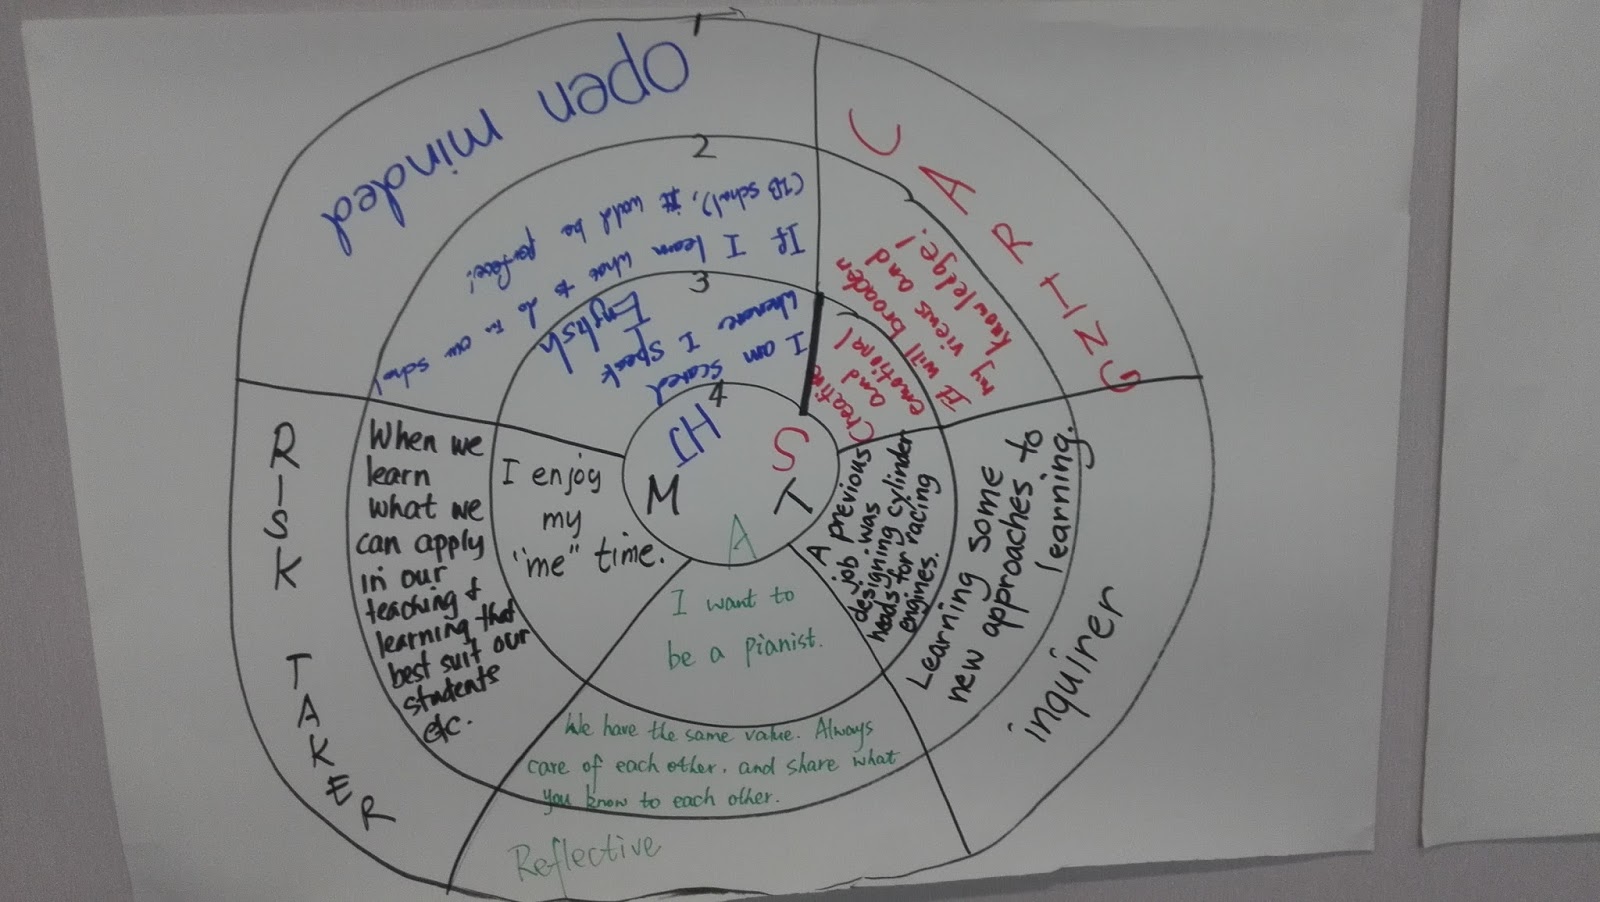 1
2
3
4
open minded
If I learn what to do in our school
(IB school), it would be
I am scared
whenever I speak
English
HJ
CARING
It will broaden
my views and
knowledge!
Creative
and
emotional
S
inquirer
Learning some
new approaches to
learning.
A previous
job was
designing cylinder
heads for racing
engines.
T
Reflective
We have the same value. Always
care of each other. and share what
you know to each other.
I want to
be a pianist.
A
RISK TAKER
When we
learn
what we
can apply
in our
teaching &
learning that
best suit our
students
etc.
I enjoy
my
"me" time.
M